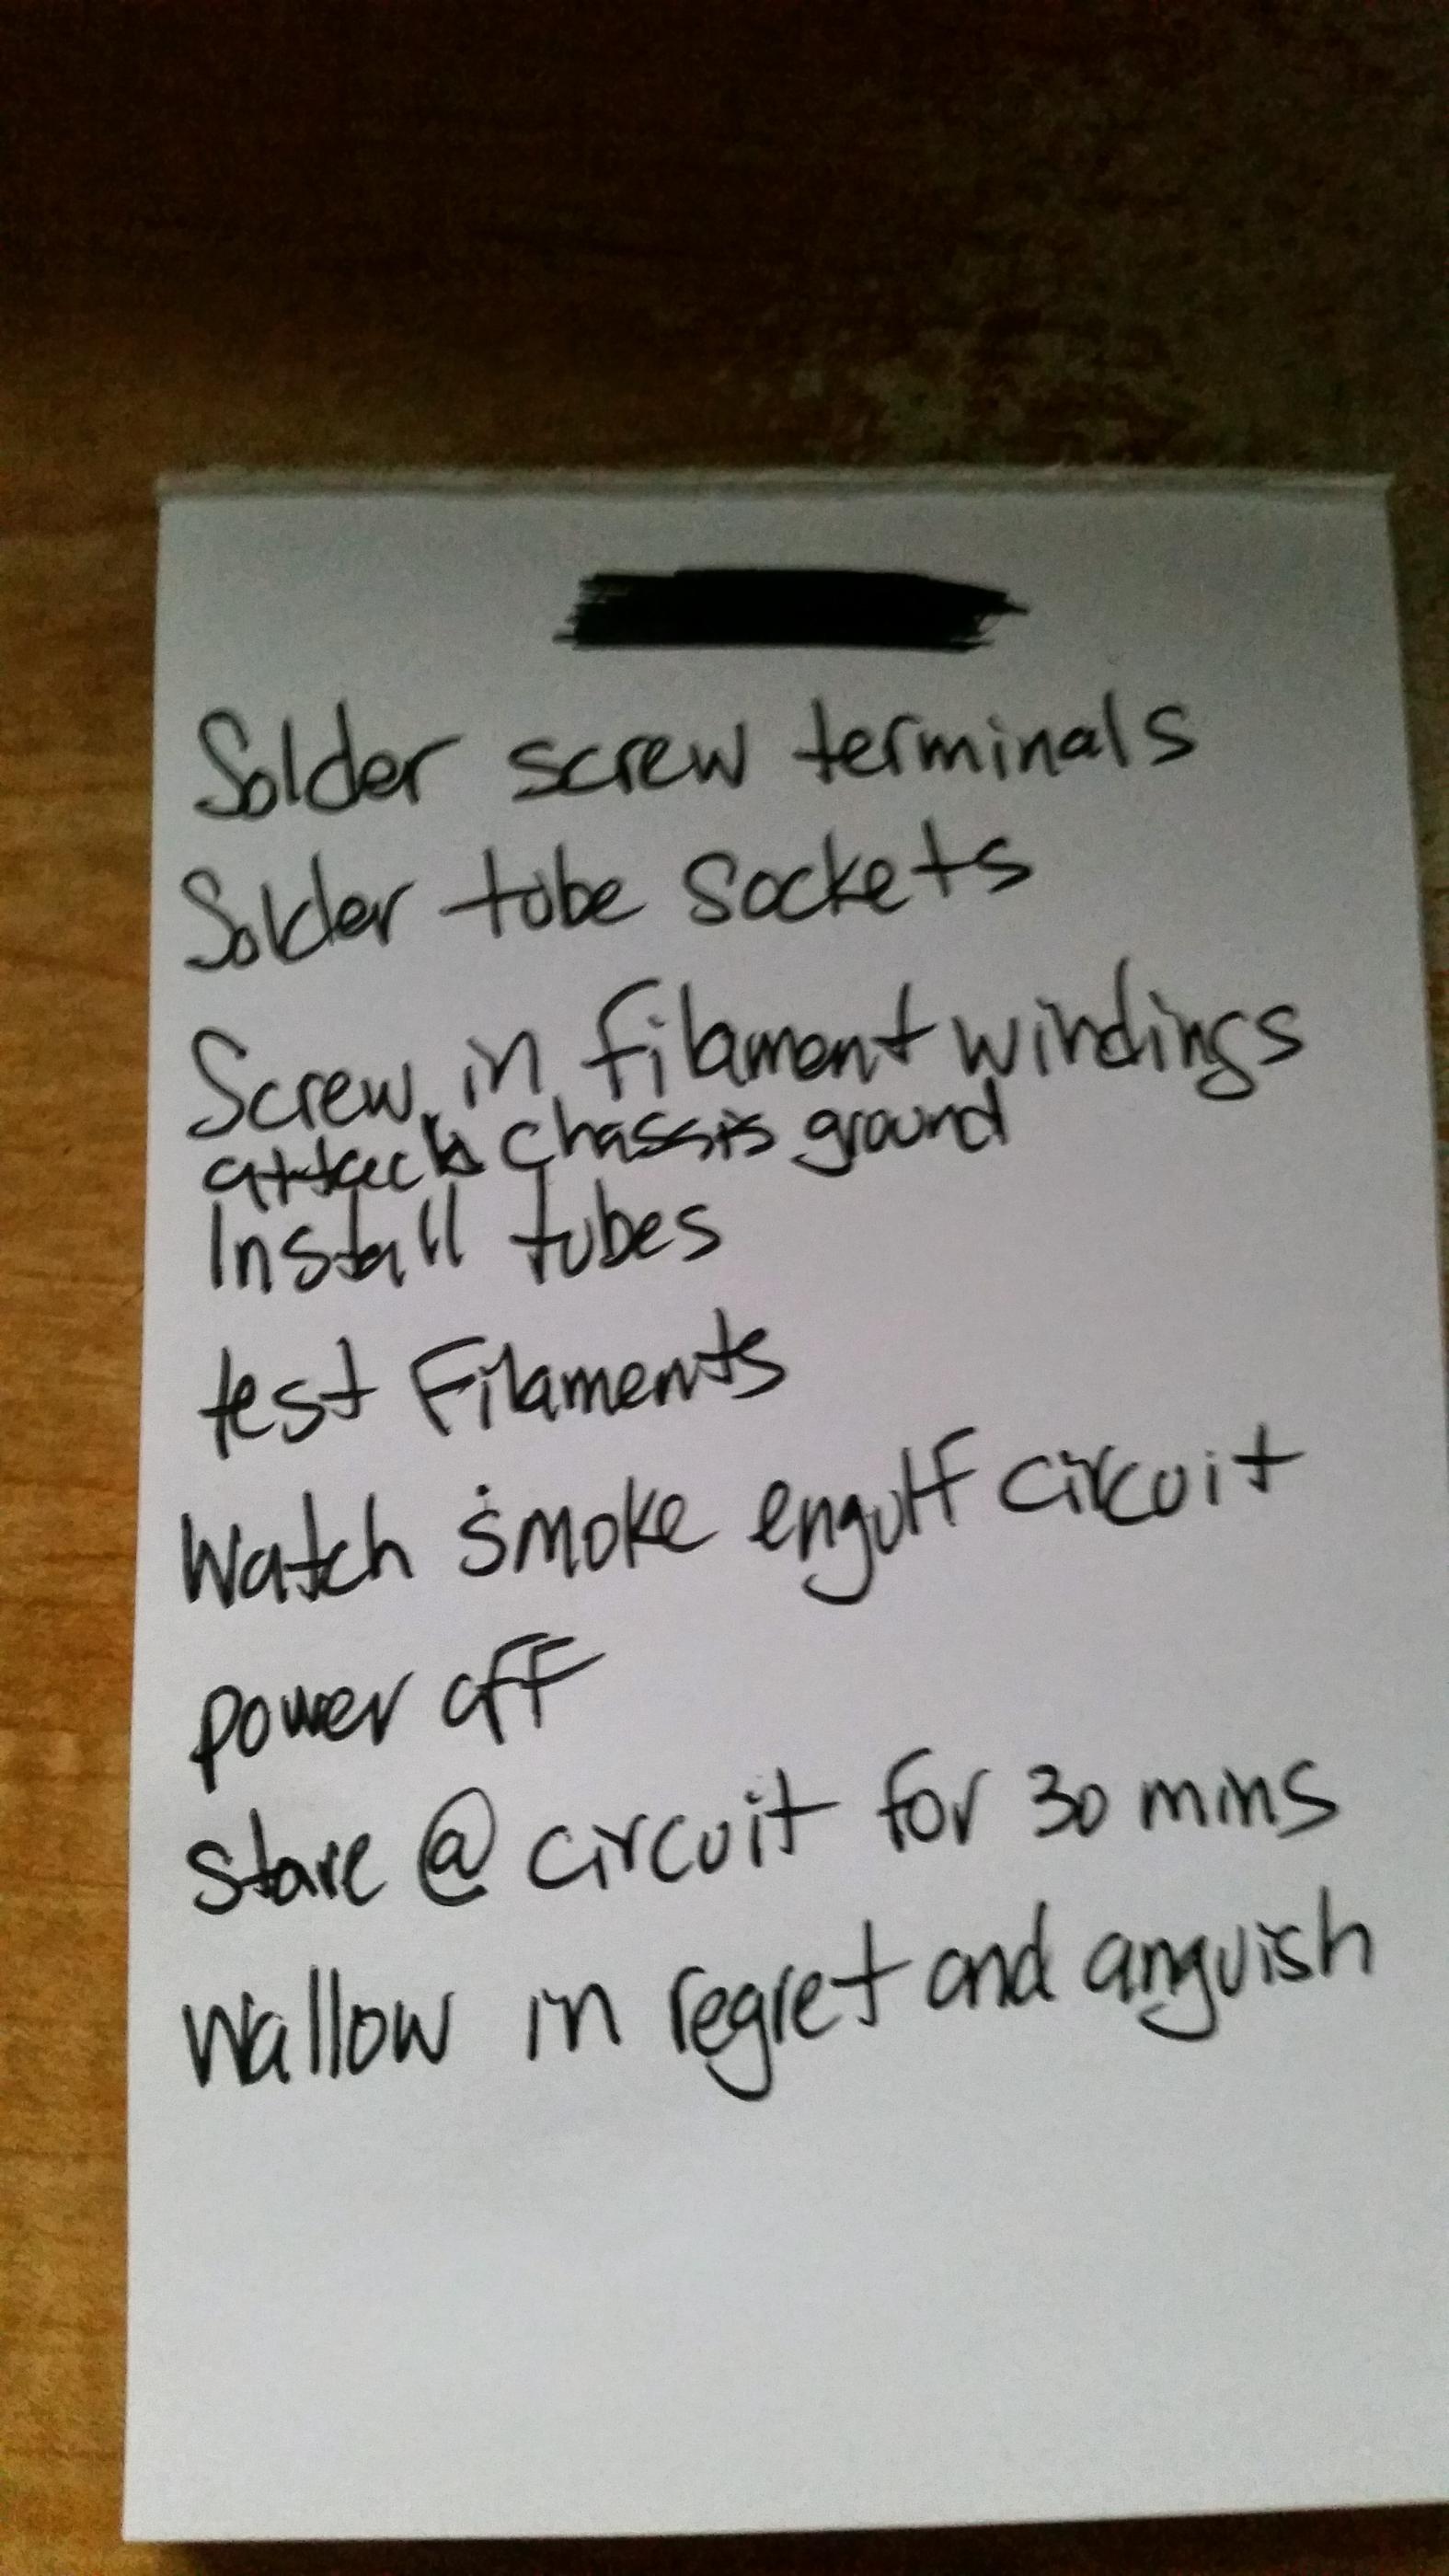 Solder screw terminals
Solder tube sockets
Screw in filament windings
attach chassis ground
Install tubes
test Filaments
Watch smoke engulf circuit
power off
stare @ circuit for 30 mins
Wallow in regret and anguish